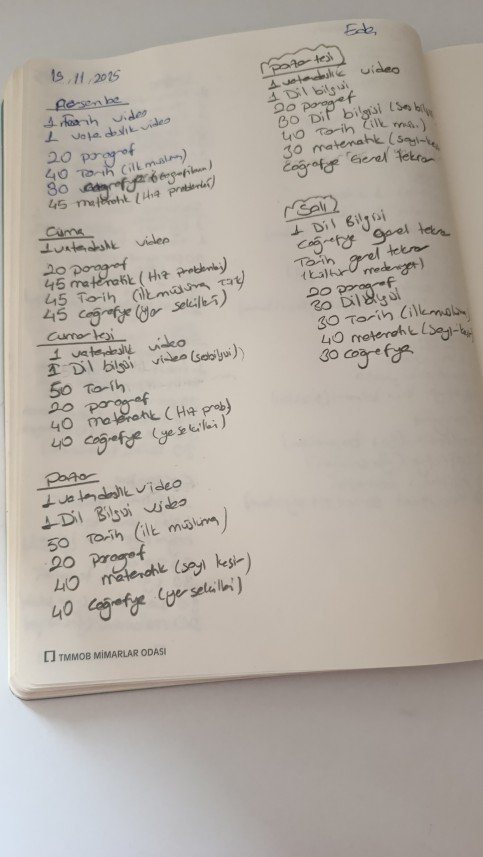 19.11.2025
Perşembe
1 Tarih video
1 vatandaşlık video
20 paragraf
40 Tarih (ilk müslüm)
30 coğrafya
45 matematik (Hız problemleri)
Cuma
1 vatandaşlık video
20 paragraf
45 matematik (Hız problemleri)
45 Tarih (ilk müslüman Türk)
45 coğrafya (yer şekilleri)
Cumartesi
1 vatandaşlık video
1 Dil bilgisi video (sesbilgisi)
50 Tarih
20 paragraf
40 matematik (Hız prob)
40 coğrafya (yeşekilleri)
Pazar
1 vatandaşlık video
1 Dil Bilgisi video
50 Tarih (ilk müslüma)
20 Paragraf
40 matematik (sayı kesir)
40 Coğrafya (yer şekilleri)
TMMOB MİMARLAR ODASI
Eda
Pazartesi
1 vatandaşlık video
1 Dil bilgisi
20 paragraf
30 Dil bilgisi (Ses bilgi
40 Tarih (ilk müs.)
30 matematik (sayı-kes
Coğrafya Genel tekrar
Salı
1 Dil Bilgisi
Coğrafya genel tekra
Tarih genel tekrar
(kültür medeniyet)
20 paragraf
30 Dilbilgisi
30 Tarih (ilk müslüma,
40 matematik (sayı-kesir
30 coğrafya